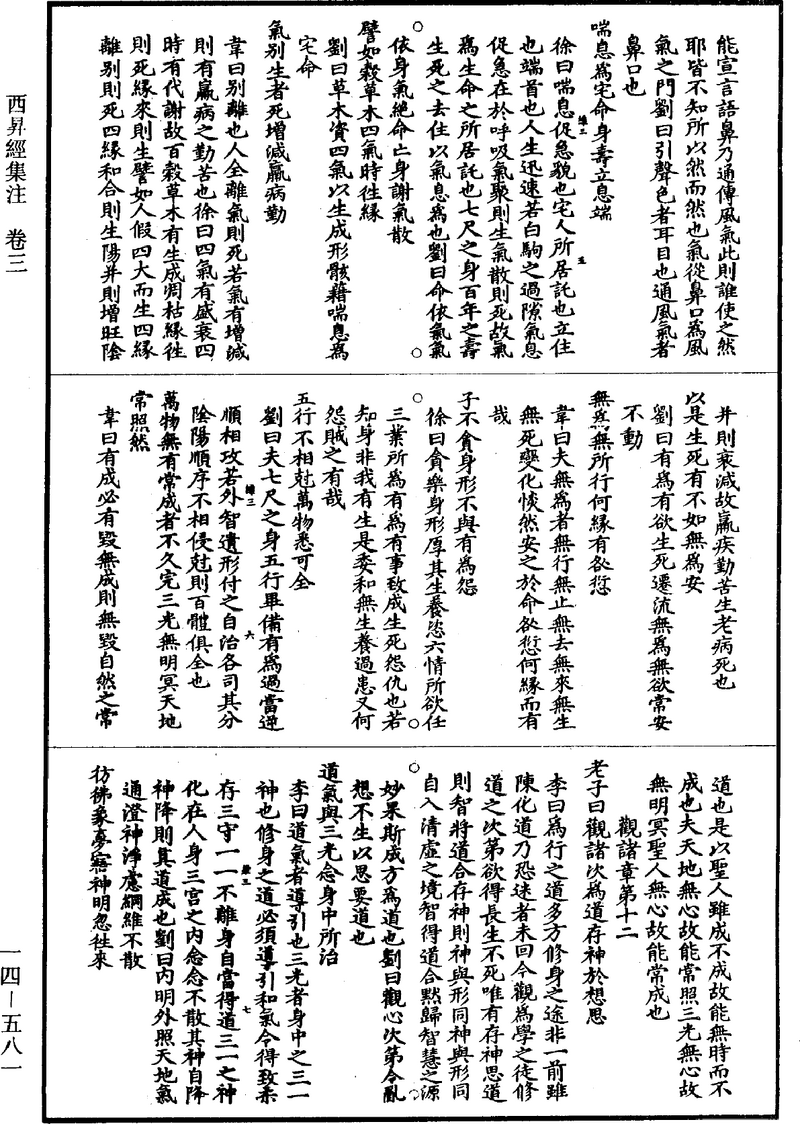 西昇經集注　卷三
能宣言語鼻乃通傳風氣此則誰使之然
耶皆不知所以然而然也氣從鼻口爲風
氣之門劉曰引聲色者耳目也通風氣者
鼻口也
喘息爲宅命身壽立息端
徐曰喘息促急貌也宅人所居託也立住
也端首也人生迅速若白駒之過隙氣息
促急在於呼吸氣聚則生氣散則死故氣
爲生命之所居託也七尺之身百年之壽
生死之去住以氣息爲也劉曰命依氣氣
依身氣絶命亡身謝氣散
譬如穀草木四氣時往緣
劉曰草木資四氣以生成形骸藉喘息爲
宅命
氣别生者死增減羸病勤
韋曰别離也人全離氣則死若氣有增減
則有羸病之勤苦也徐曰四氣有盛衰四
時有代謝故百穀草木有生成凋枯緣徃
則死緣來則生譬如人假四大而生四緣
離别則死四緣和合則生陽并則增旺陰
并則衰減故羸疾勤苦生老病死也
以是生死有不如無爲安
劉曰有爲有欲生死遷流無爲無欲常安
不動
無爲無所行何緣有咎愆
韋曰夫無爲者無行無止無去無來無生
無死變化惔然安之於命咎愆何緣而有
哉
子不貪身形不與有爲怨
徐曰貪樂身形厚其生養恣六情所欲任
三業所爲有爲有事致成生死怨仇也若
知身非我有生是委和無生養過患又何
怨賊之有哉
五行不相尅萬物悉可全
劉曰夫七尺之身五行畢備有爲過當逆
順相攻若外智遺形付之自治各司其分
陰陽順序不相侵尅則百體俱全也
萬物無有常成者不久完三光無明冥天地
常照然
韋曰有成必有毁無成則無毁自然之常
道也是以聖人雖成不成故能無時而不
成也夫天地無心故能常照三光無心故
無明冥聖人無心故能常成也
觀諸章第十二
老子曰觀諸次爲道存神於想思
李曰爲行之道多方修身之途非一前雖
陳化道乃恐迷者未回今觀爲學之徒修
道之次第欲得長生不死唯有存神思道
則智將道合存神則神與形同神與形同
自入清虚之境智得道合黙歸智慧之源
妙果斯成方爲道也劉曰觀心次第令亂
想不生以思要道也
道氣與三光念身中所治
李曰道氣者導引也三光者身中之三一
神也修身之道必須導引和氣令得致柔
存三守一一不離身自當得道三一之神
化在人身三宫之内念念不散其神自降
神降則真道成也劉曰内明外照天地氣
通澄神淨慮綱維不散
彷彿象夢寤神明忽往來
一四—五八一